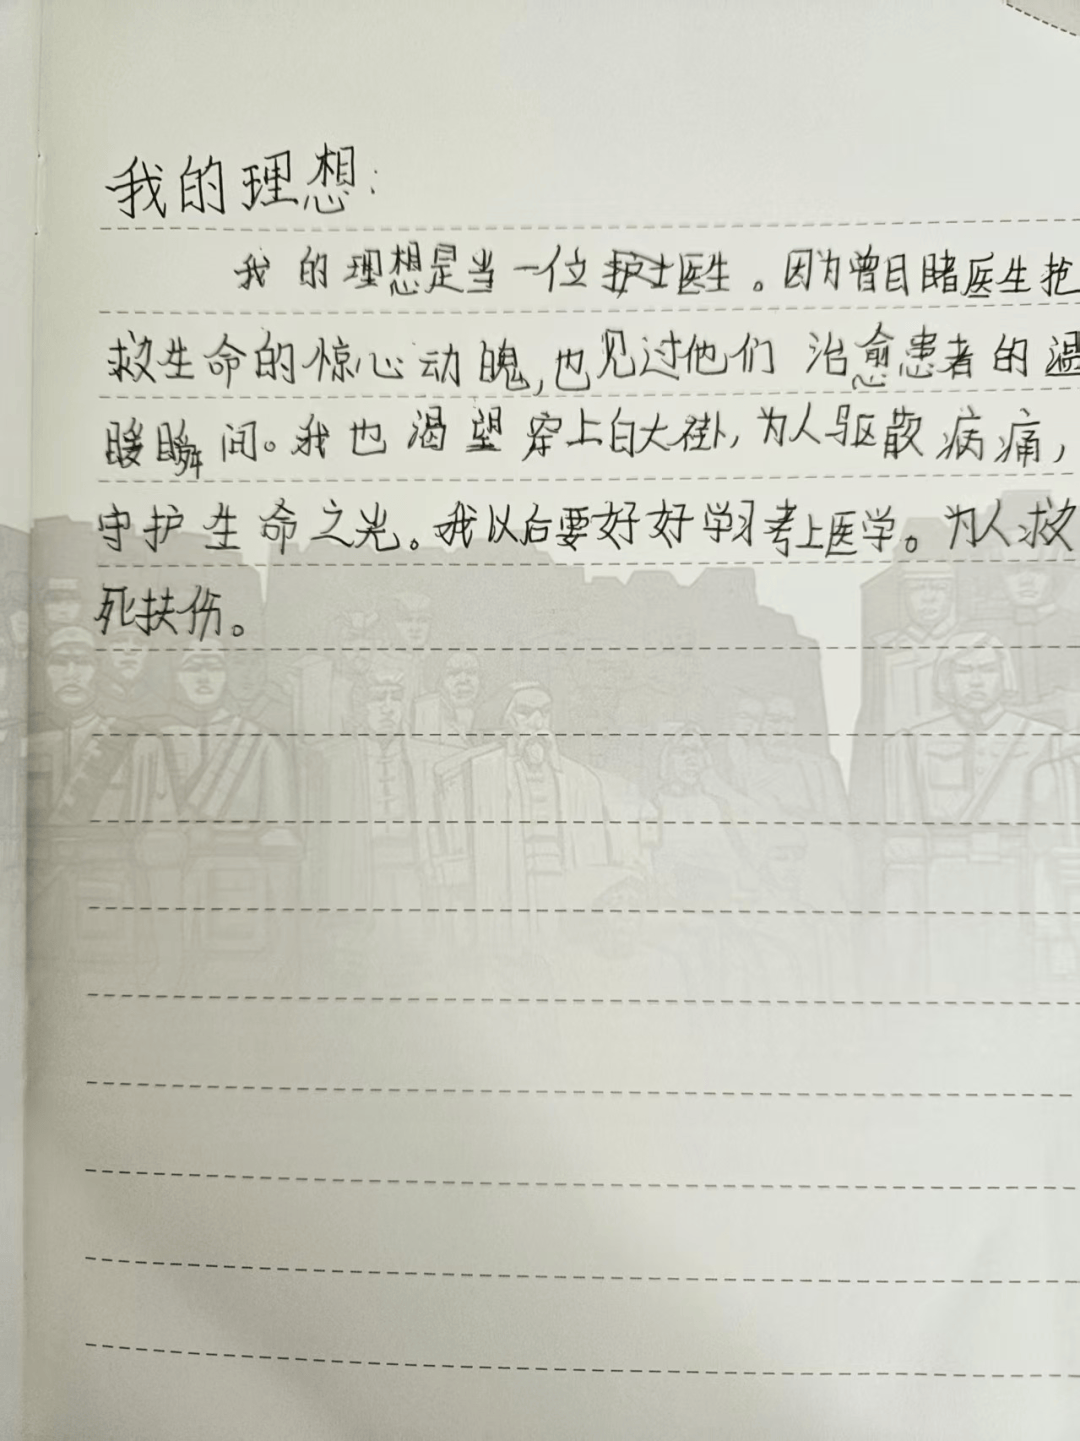 我的理想:
我的理想是当一位护士医生。因为曾目睹医生抢
救生命的惊心动魄,也见过他们治愈患者的温
暖瞬间。我也渴望穿上白大褂,为人驱散病痛,
守护生命之光。我以后要好好学习考上医学。为人救
死扶伤。